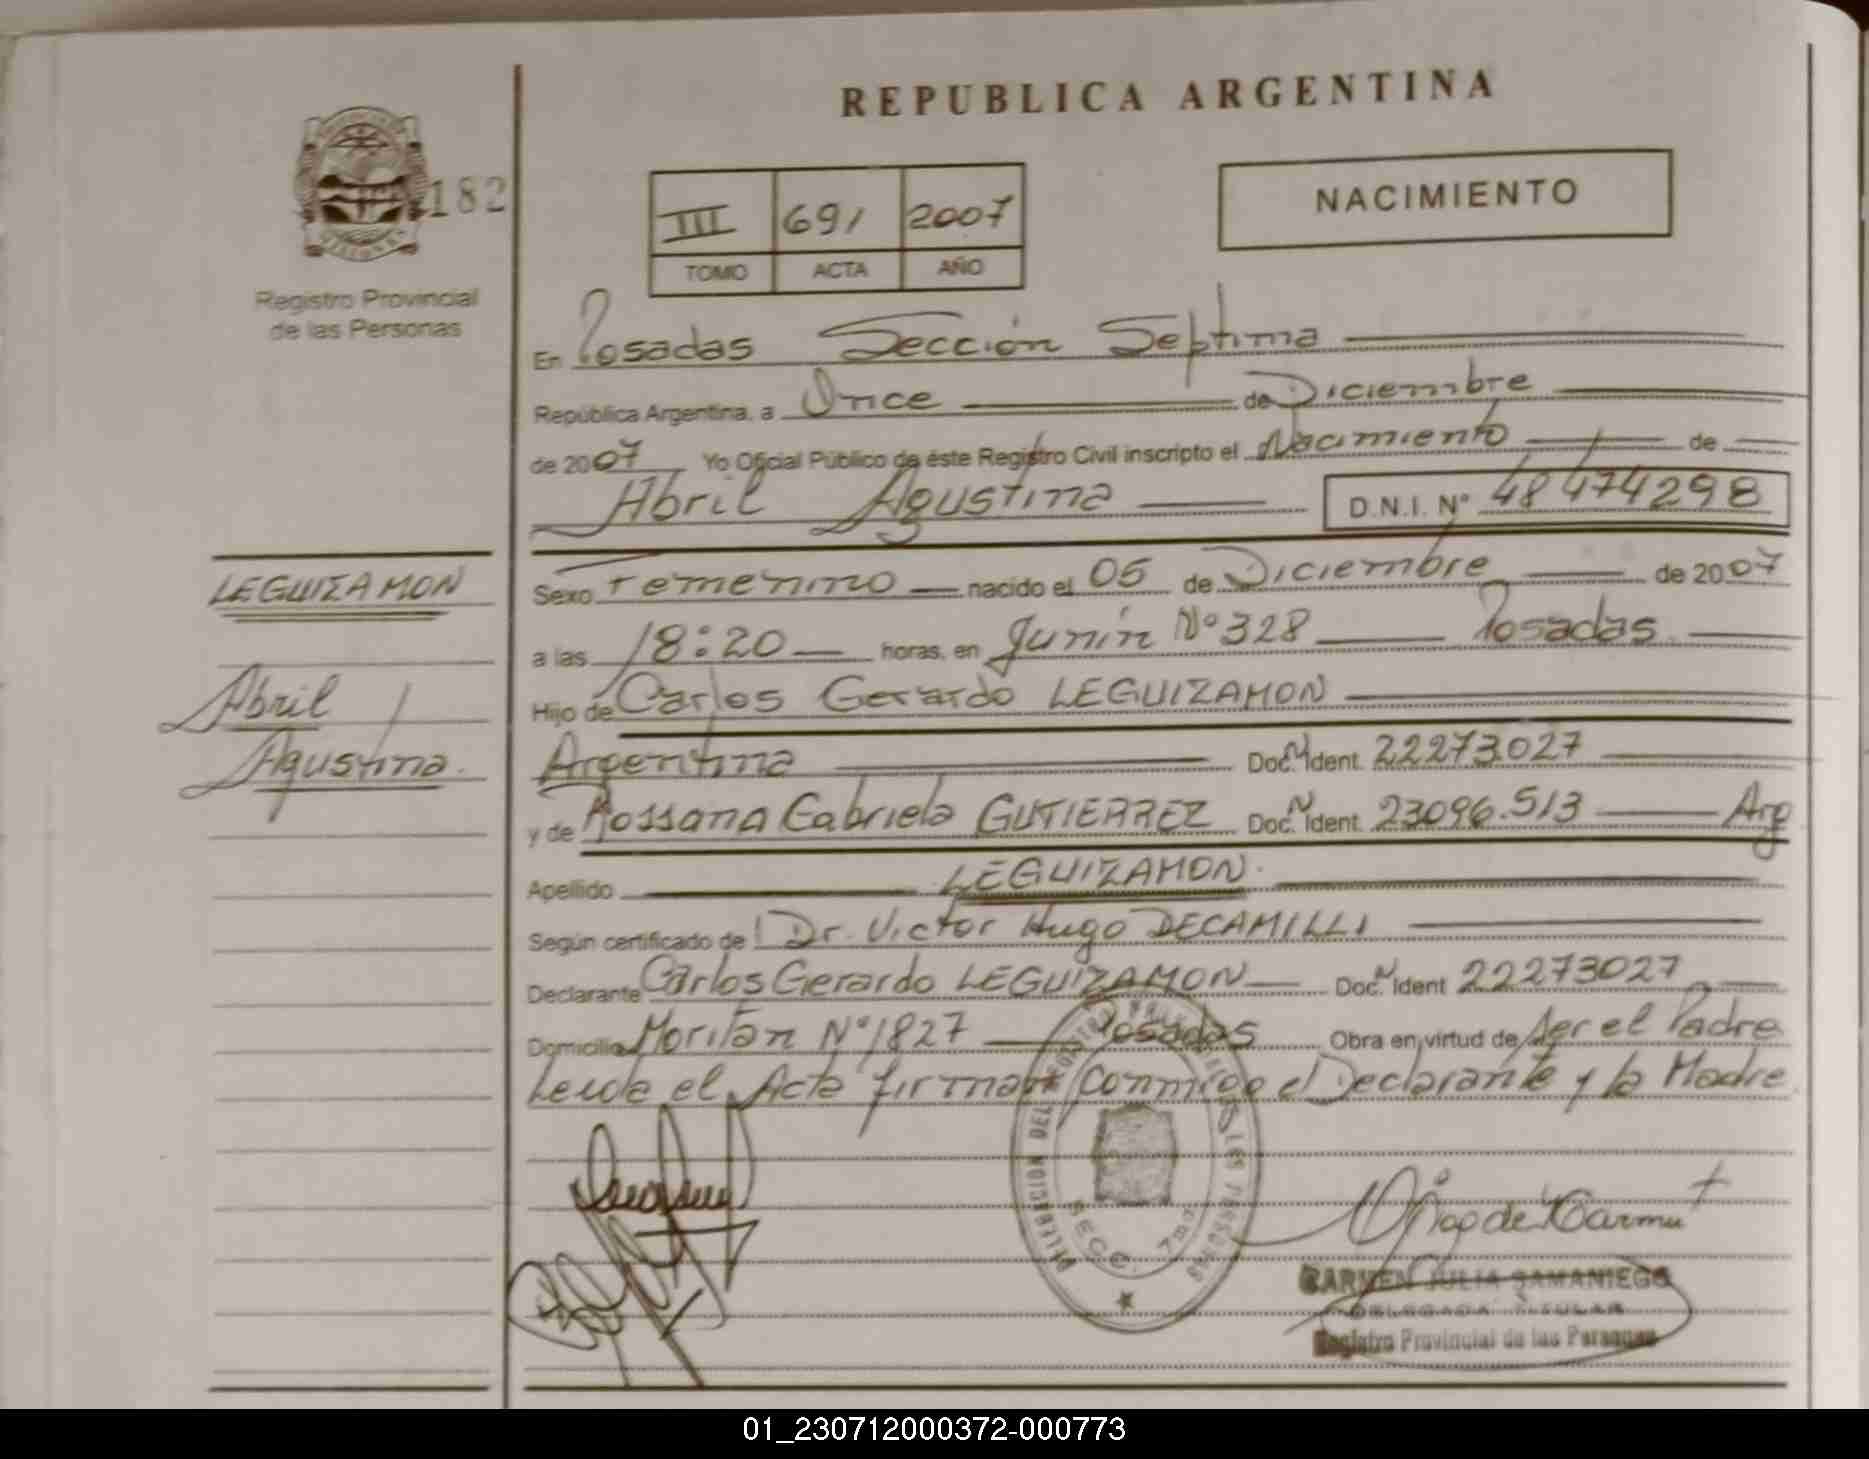 REPUBLICA ARGENTINA
182
Registro Provincial
de las Personas
III 691 2007
TOMO ACTA AÑO
NACIMIENTO
En Posadas Sección Septima
República Argentina, a Once de Diciembre
de 2007 Yo Oficial Público de éste Registro Civil inscripto el Nacimiento de
Abril Agustina D.N.I. Nº 48474298
LEGUIZAMON
Abril
Agustina.
Sexo Femenino nacido el 05 de Diciembre de 2007
a las 18:20 horas, en Junín Nº 328 Posadas
Hijo de Carlos Gerardo LEGUIZAMON
Argentina Doc. Ident. 22273.027
y de Rossana Gabriela GUTIERREZ Doc. Ident. 23096.513 Arg
Apellido LEGUIZAMON.
Según certificado de Dr. Victor Hugo DECAMILLI
Declarante Carlos Gerardo LEGUIZAMON Doc. Ident 22273027
Domicilio Nº 1827 Posadas Obra en virtud de ser el Padre
Leida el Acta firman conmigo el Declarante y la Madre
DELEGACION DEL
SECC. 7ma
CARMEN JULIA SAMANIEGO
DELEGADA TITULAR
Registro Provincial de las Personas
01_230712000372-000773